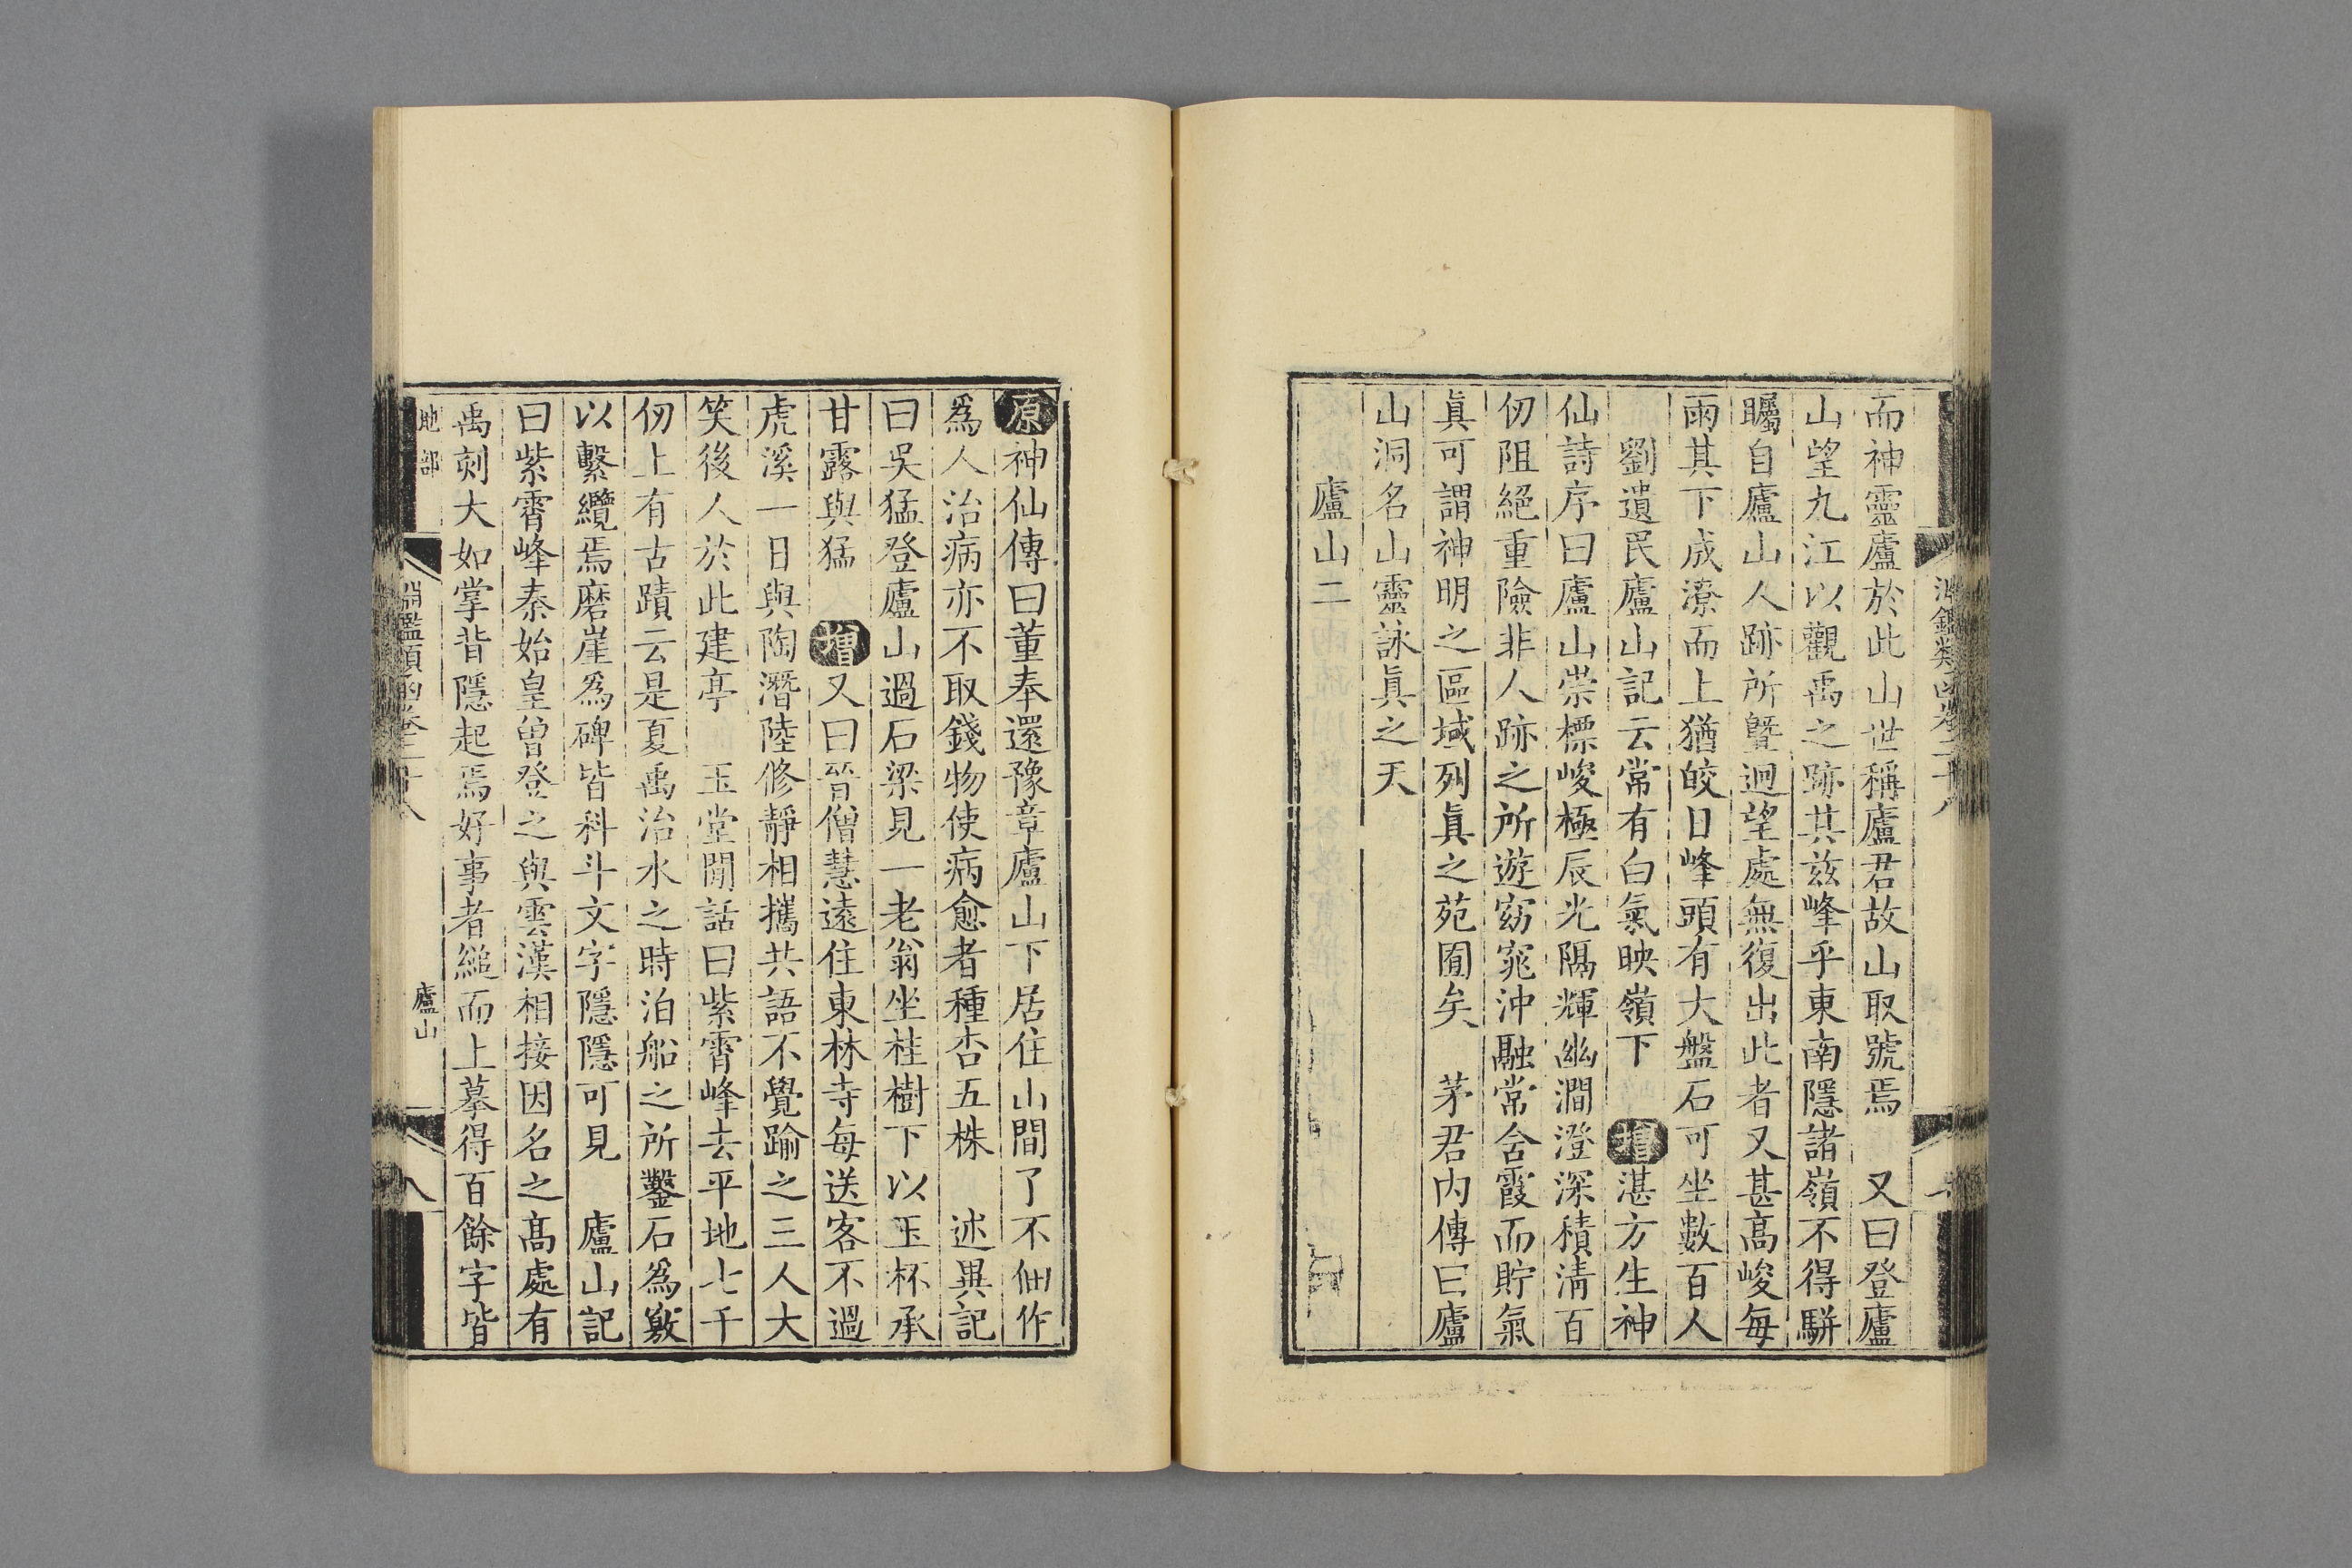 而神靈廬於此山世稱廬君故山取號焉　又曰登廬
山望九江以觀禹之跡其茲峰乎東南隱諸嶺不得駢
矚自廬山人跡所曁迥望處無復出此者又甚高峻每
雨其下成潦而上猶皎日峰頭有大盤石可坐數百人
劉遺民廬山記云常有白氣映嶺下　增湛方生神
仙詩序曰廬山崇標峻極辰光隔輝幽澗澄深積清百
仞阻絕重險非人跡之所遊窈窕沖融常含霞而貯氣
眞可謂神明之區域列眞之苑囿矣　茅君内傳曰廬
山洞名山靈詠眞之天
廬山二
原神仙傳曰董奉還豫章廬山下居住山間了不佃作
爲人治病亦不取錢物使病愈者種杏五株　述異記
曰吳猛登廬山過石梁見一老翁坐桂樹下以玉杯承
甘露與猛　增又曰晉僧慧遠住東林寺每送客不過
虎溪一日與陶潛陸修靜相攜共語不覺踰之三人大
笑後人於此建亭　玉堂閒話曰紫霄峰去平地七千
仞上有古蹟云是夏禹治水之時泊船之所鑿石爲竅
以繫纜焉磨崖爲碑皆科斗文字隱隱可見　廬山記
曰紫霄峰秦始皇曾登之與雲漢相接因名之高處有
禹刻大如掌背隱起焉好事者縋而上摹得百餘字皆
地部
淵鑑類函卷二十八
廬山
八